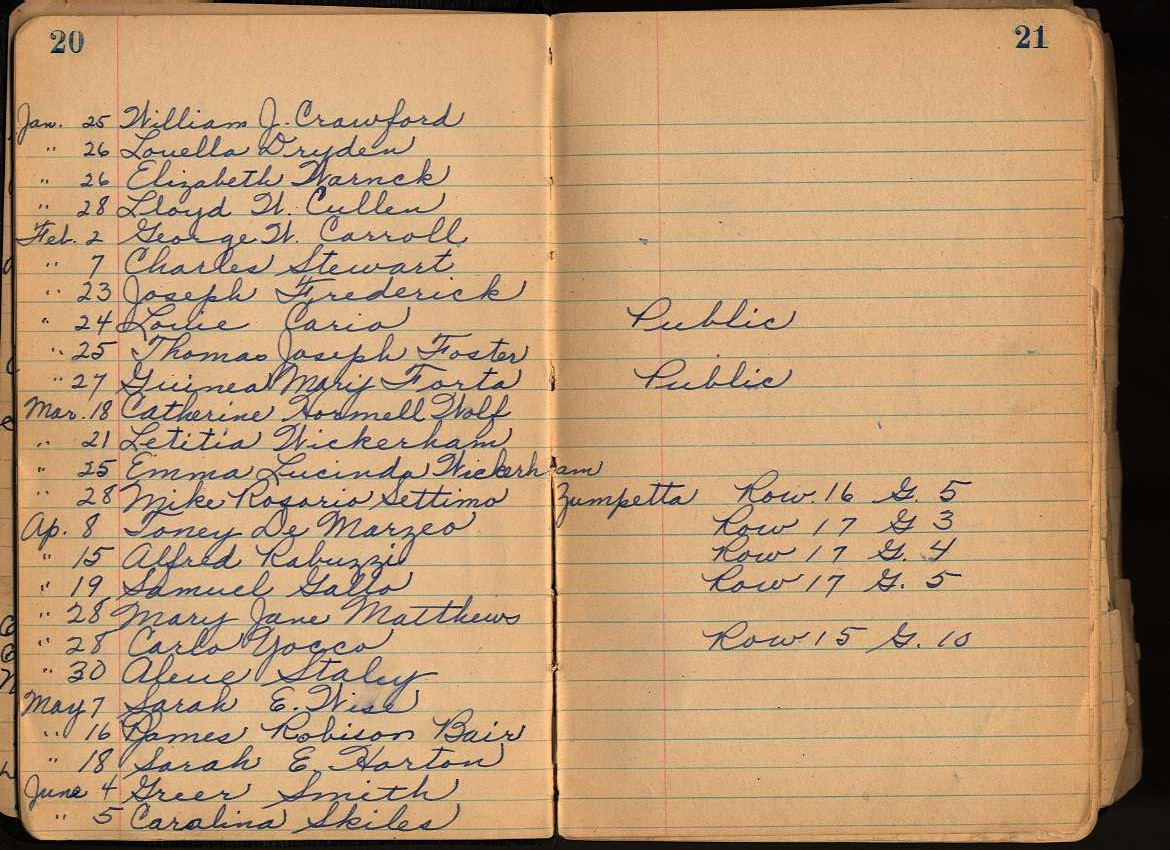 20
21
Jan. 25 William J. Crawford
" 26 Louella Dryden
" 26 Elizabeth Warnck
" 28 Lloyd W. Cullen
Feb. 2 George W. Carroll
" 7 Charles Stewart
" 23 Joseph Frederick
" 24 Louie Cario Public
" 25 Thomas Joseph Foster
" 27 Guinea Mary Forta Public
Mar. 18 Catherine Hormell Wolf
" 21 Letitia Wickerham
" 25 Emma Lucinda Wickerham
" 28 Mike Rosario Settimo Zumpetta Row 16 G. 5
Ap. 8 Toney De Marzeo Row 17 G 3
" 15 Alfred Rabuzzi Row 17 G. 4
" 19 Samuel Gallo Row 17 G. 5
" 28 Mary Jane Matthews
" 28 Carlo Yocco Row 15 G. 10
" 30 Staley
May 7 Sarah E. Wise
" 16 James Robison Bair
" 18 Sarah E. Horton
June 4 Greer Smith
" 5 Carolina Skiles